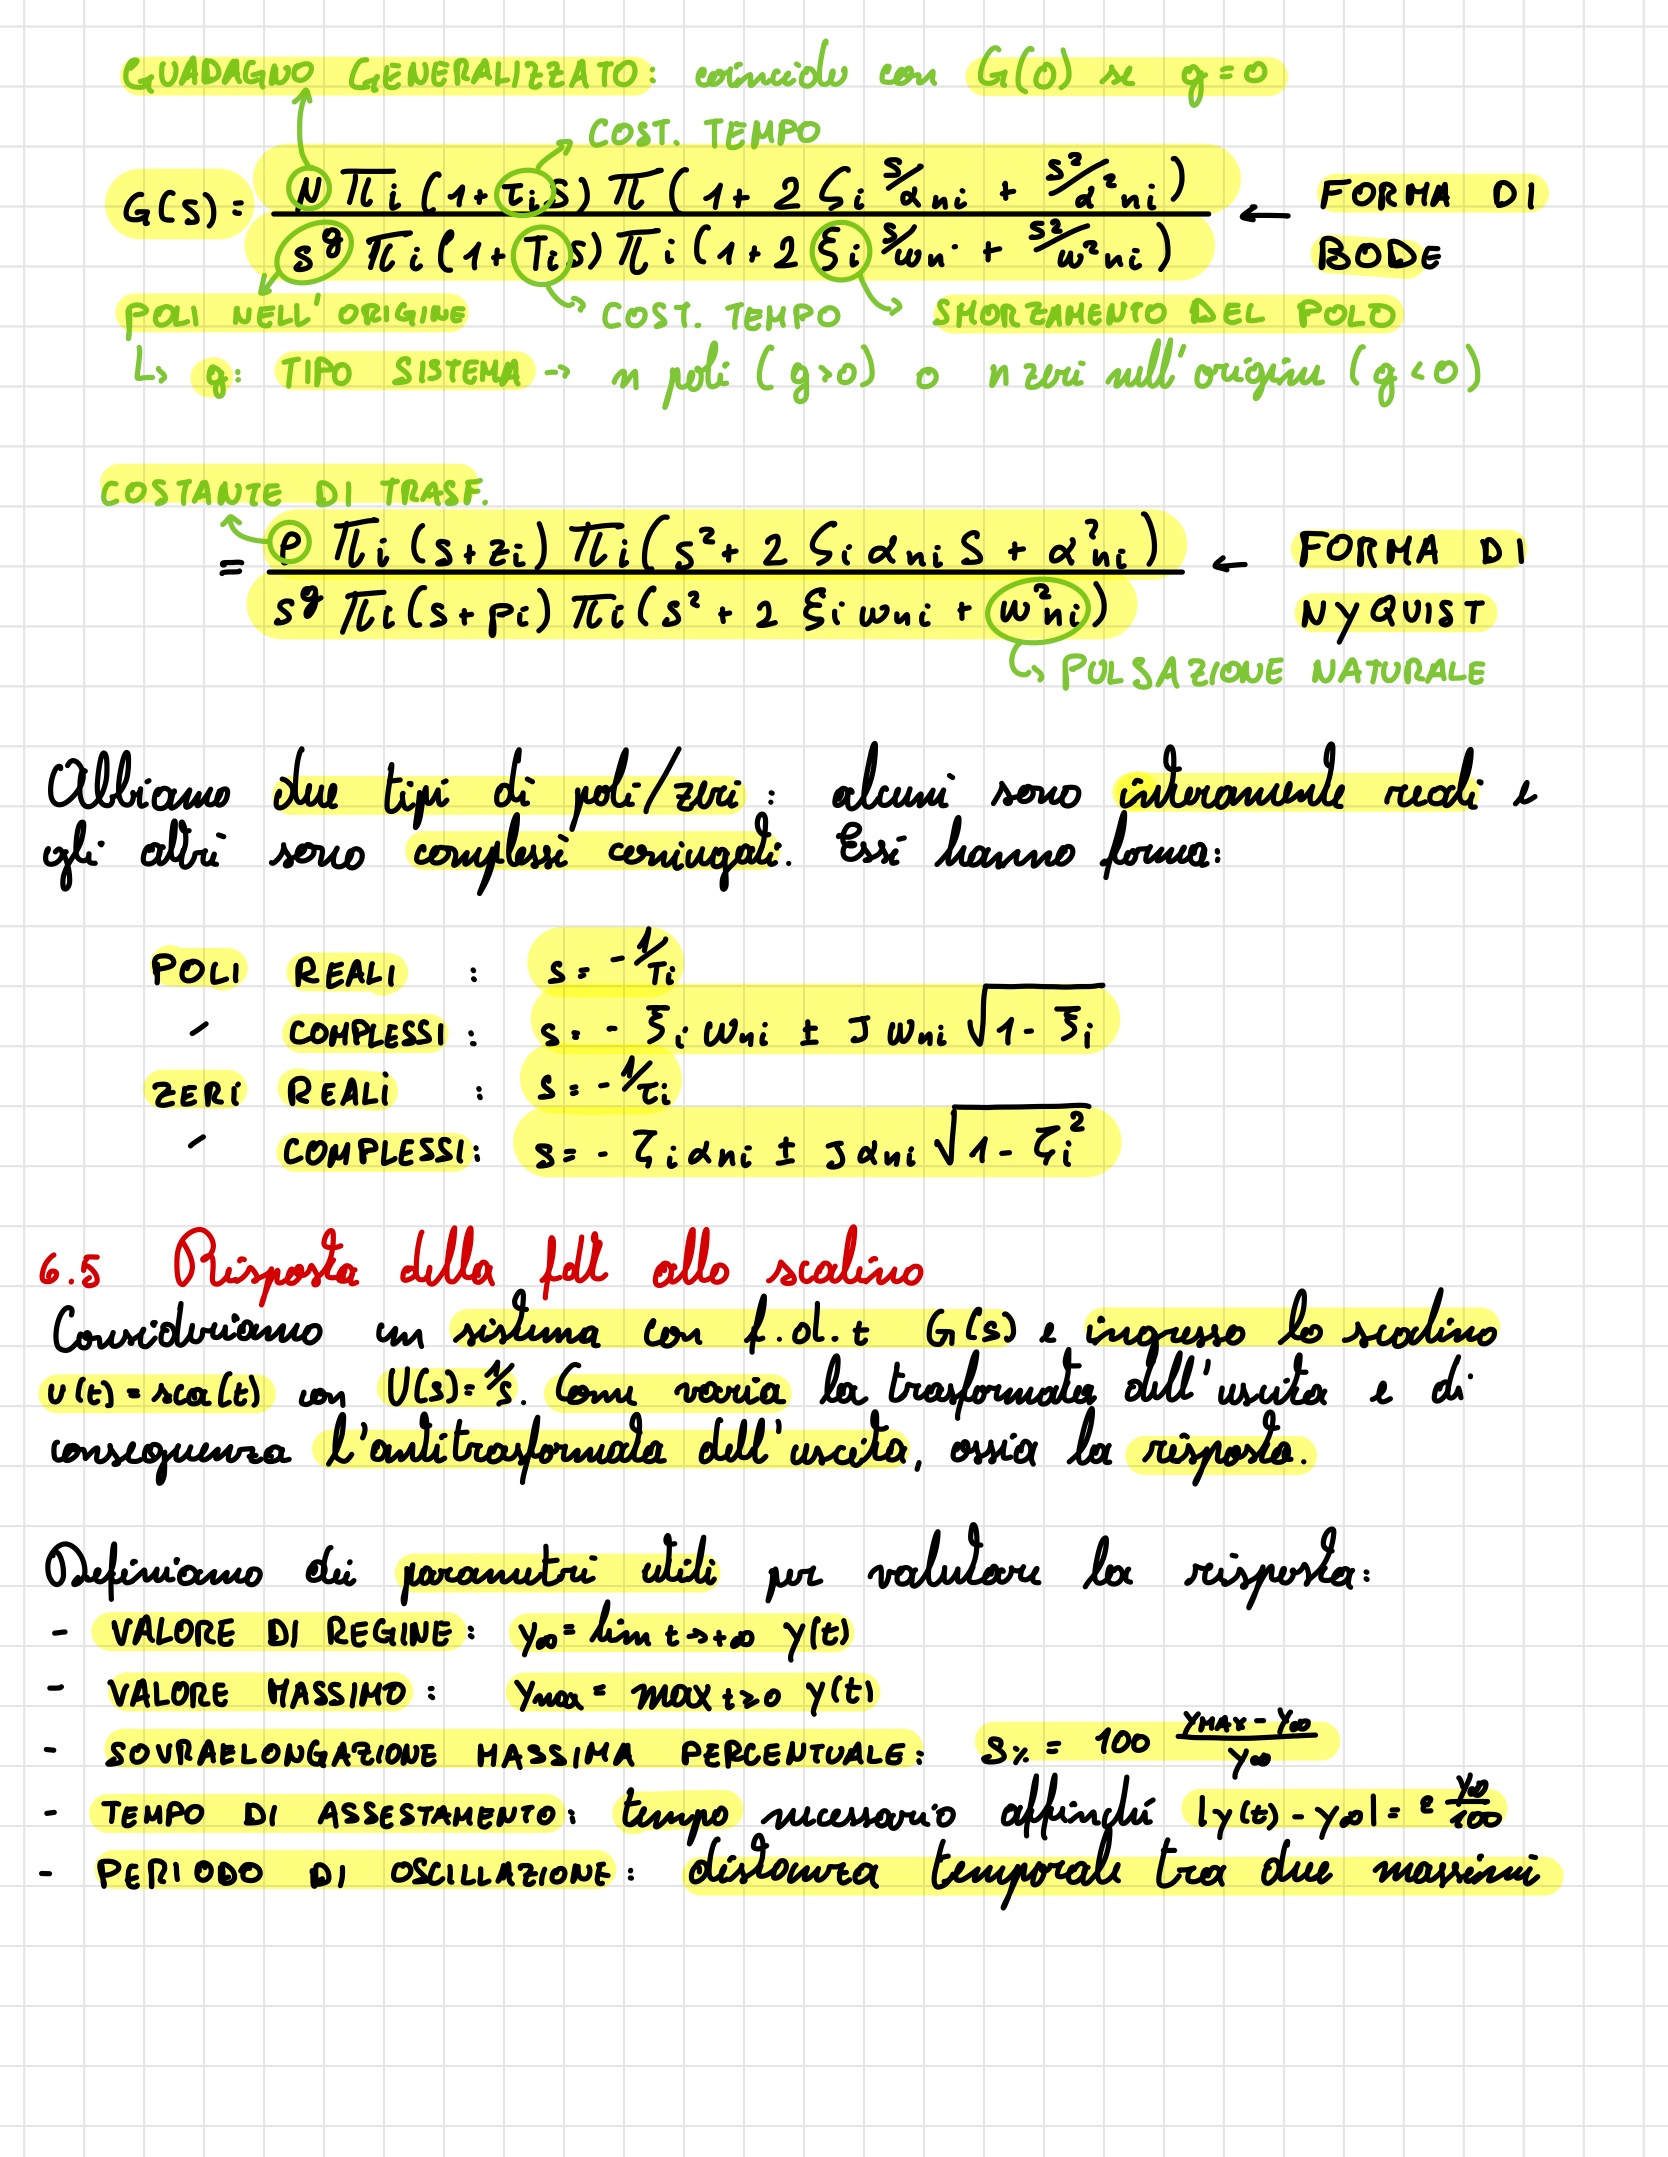 GUADAGNO GENERALIZZATO: coincide con G(0) se g=0
COST. TEMPO
G(s) = N πi (1+ τi s) π ( 1+ 2 ζi s/αni + s²/α²ni ) ← FORMA DI
s^g πi (1+ Ti s) πi (1+2 ξi s/ωn· + s²/ω²ni ) BODE
POLI NELL'ORIGINE COST. TEMPO SMORZAMENTO DEL POLO
↳ g: TIPO SISTEMA → n poli (g>0) o n zeri nell'origine (g<0)
COSTANTE DI TRASF.
= ρ πi (s+zi) πi (s²+ 2 ζi αni s + α²ni) ← FORMA DI
s^g πi (s+pi) πi (s² + 2 ξi ωni + ω²ni) NYQUIST
↳ PULSAZIONE NATURALE
Abbiamo due tipi di poli/zeri : alcuni sono interamente reali e
gli altri sono complessi coniugati. Essi hanno forma:
POLI REALI : s = -1/Ti
〃 COMPLESSI : s = - ξi ωni ± J ωni √1- ξi
ZERI REALI : s = -1/τi
〃 COMPLESSI: s = - ζi αni ± J αni √1- ζi²
6.5 Risposta della fdt allo scalino
Consideriamo un sistema con f.d.t G(s) e ingresso lo scalino
u(t) = sca(t) con U(s)=1/s. Come varia la trasformata dell'uscita e di
conseguenza l'antitrasformata dell'uscita, ossia la risposta.
Definiamo dei parametri utili per valutare la risposta:
- VALORE DI REGINE: y∞ = lim t→+∞ y(t)
- VALORE MASSIMO : ymax = max t≥0 y(t)
- SOVRAELONGAZIONE MASSIMA PERCENTUALE: S% = 100 (yMAX - y∞)/y∞
- TEMPO DI ASSESTAMENTO: tempo necessario affinché |y(t) - y∞| = e y∞/100
- PERIODO DI OSCILLAZIONE : distanza temporale tra due massimi